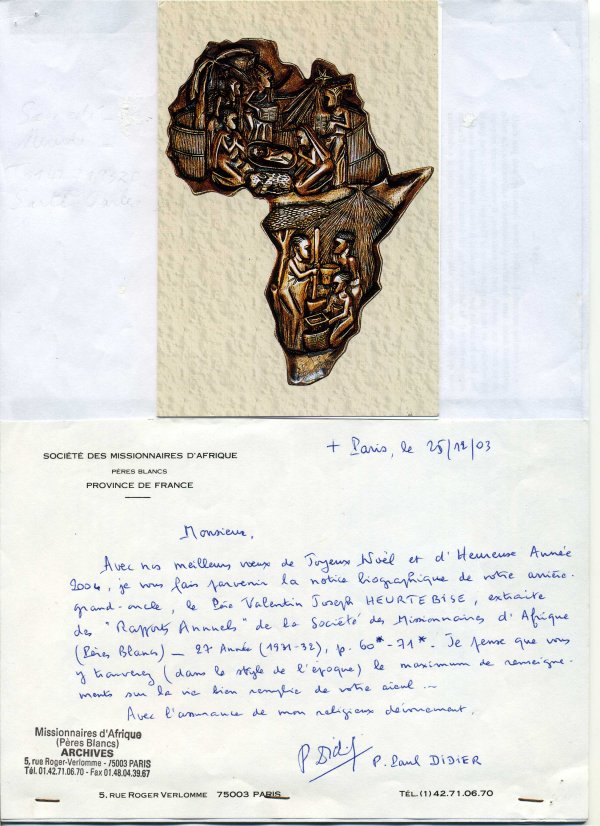 SOCIÉTÉ DES MISSIONNAIRES D'AFRIQUE
PÈRES BLANCS
PROVINCE DE FRANCE
+ Paris, le 25/12/03
Monsieur,
Avec nos meilleurs vœux de Joyeux Noël et d'Heureuse Année
2004, je vous fais parvenir la notice biographique de votre arrière-
grand-oncle, le Père Valentin Joseph HEURTEBISE, extraite
des "Rapports Annuels" de la Société des Missionnaires d'Afrique
(Pères Blancs) – 27 Année (1931-32), p. 60*-71*. Je pense que vous
y trouverez (dans le style de l'époque) le maximum de renseigne-
ments sur la vie bien remplie de votre aïeul ...
Avec l'assurance de mon religieux dévouement.
P. Didier
P. Paul DIDIER
Missionnaires d'Afrique
(Pères Blancs)
ARCHIVES
5, rue Roger-Verlomme - 75003 PARIS
Tél. 01.42.71.06.70 - Fax 01.48.04.39.67
5, RUE ROGER VERLOMME 75003 PARIS TÉL. (1) 42.71.06.70